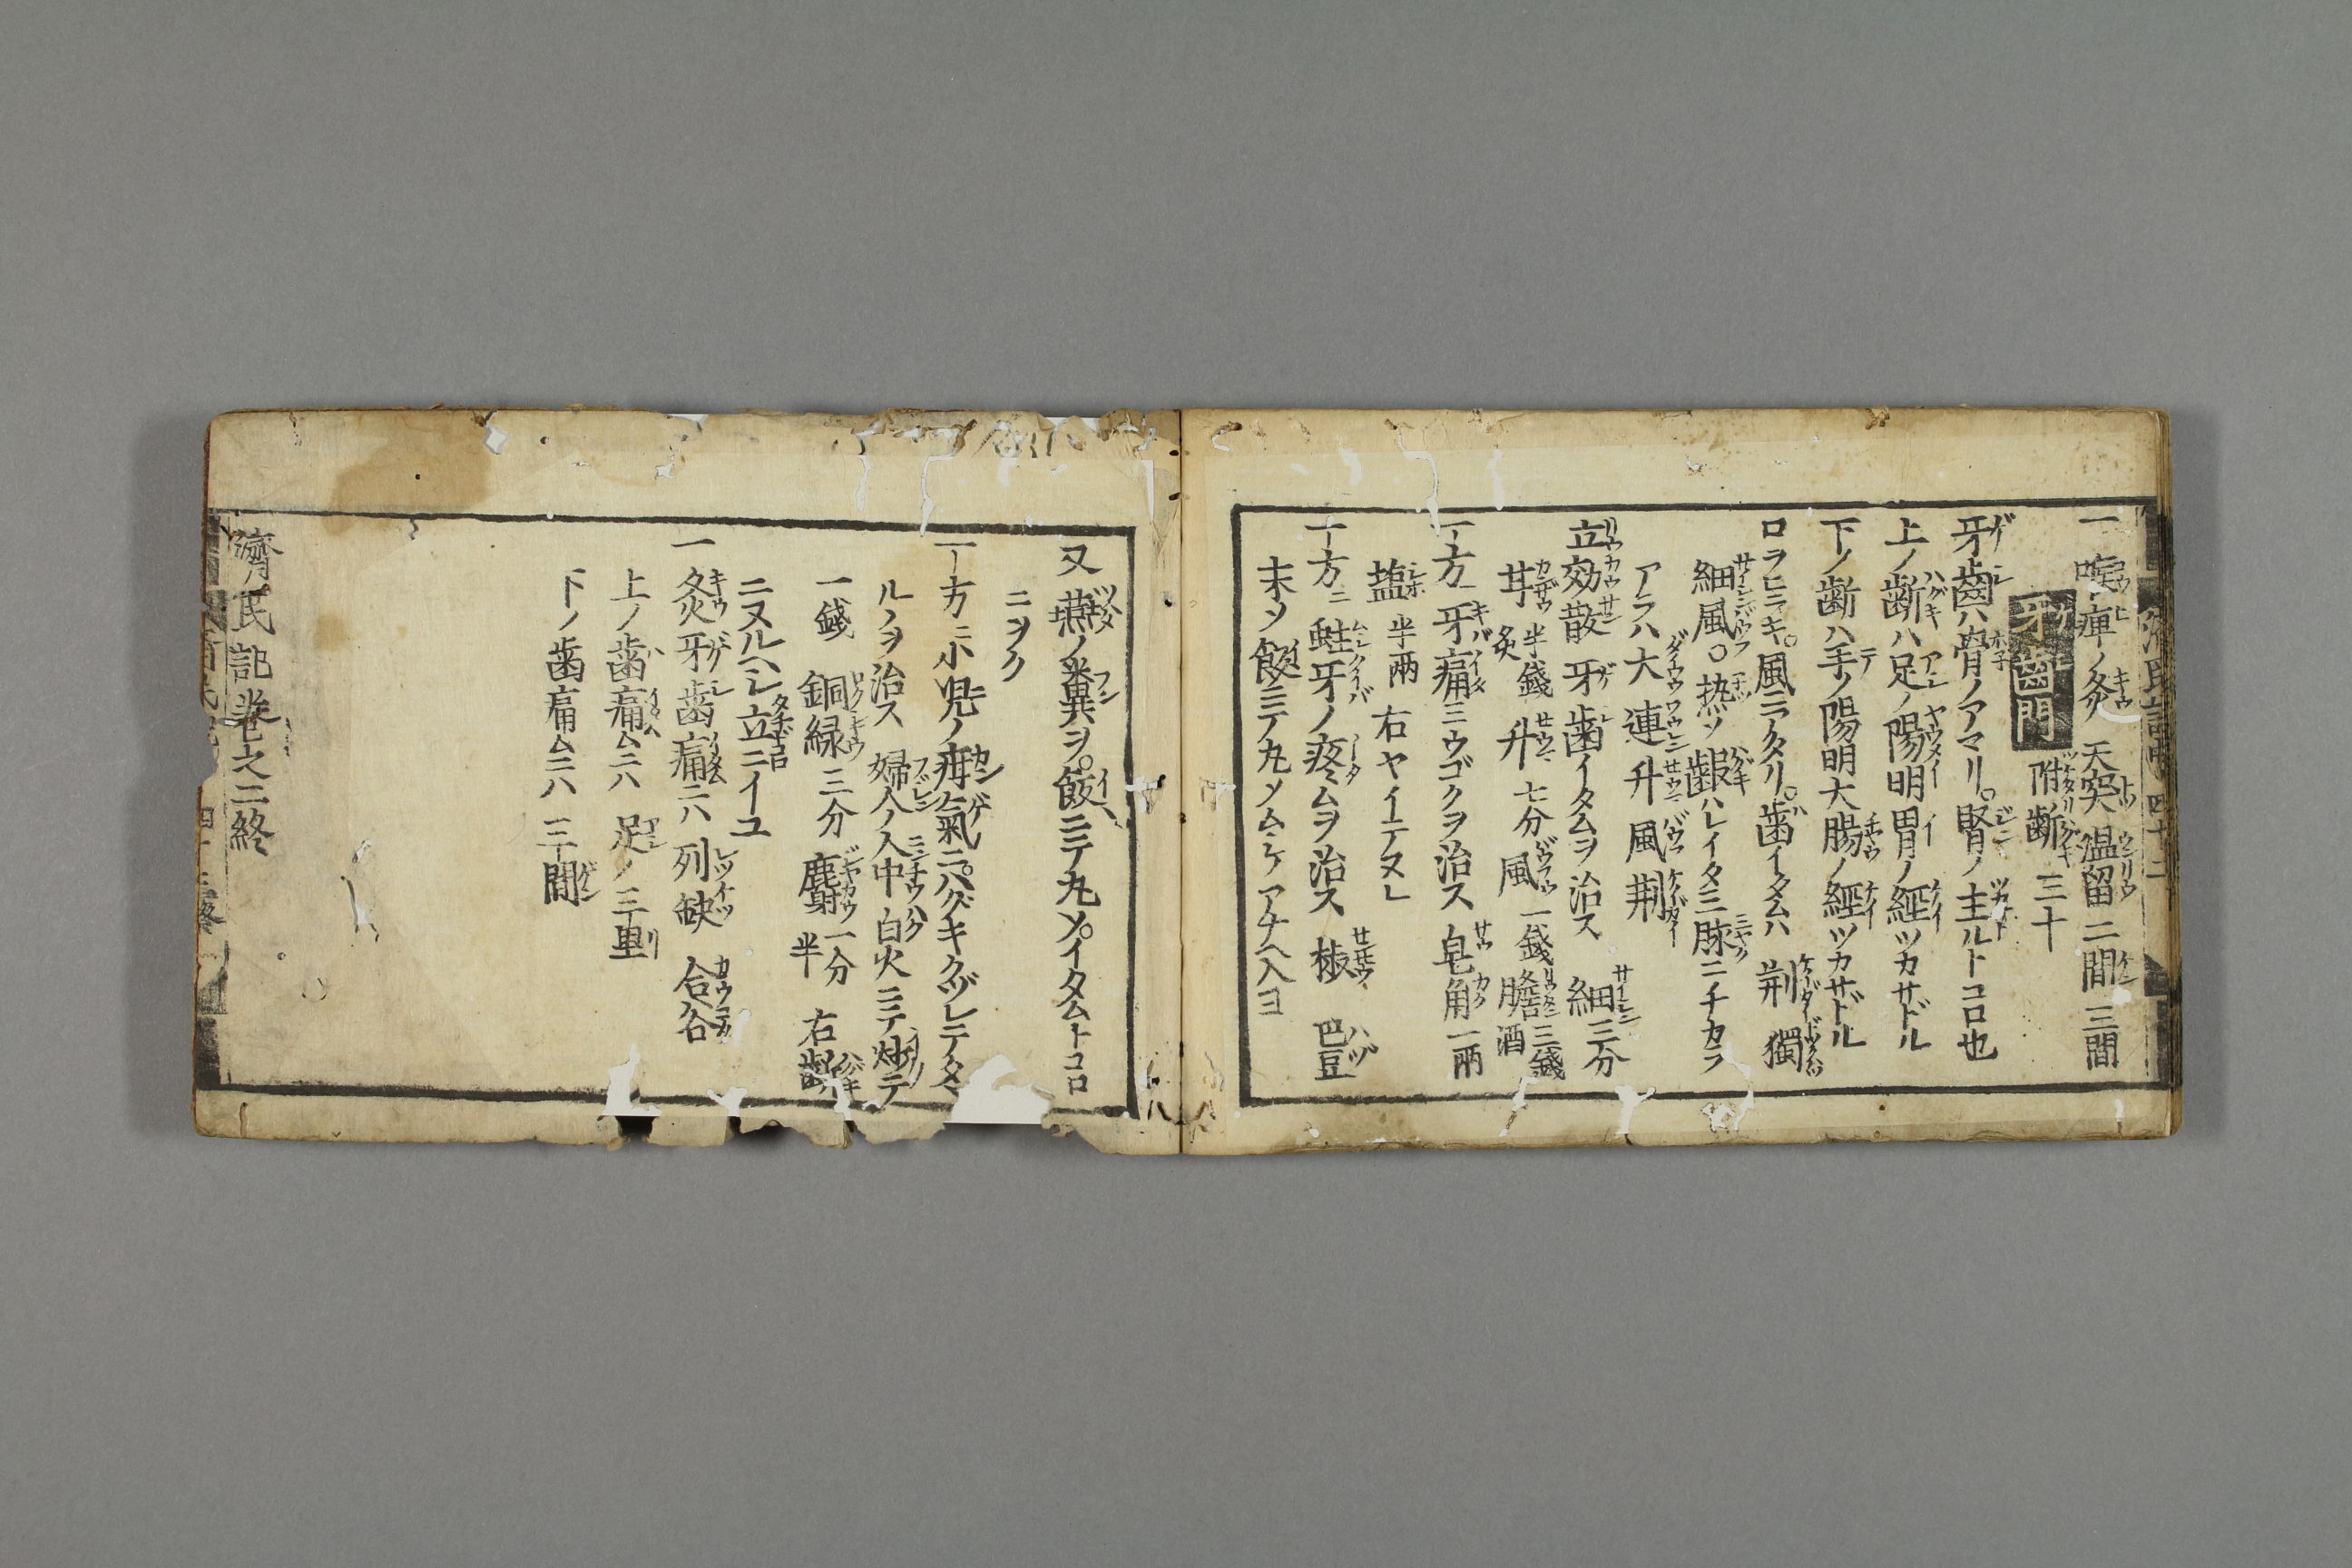 一 喉痺ノ灸 天突 温留 二間 三間
牙歯門 附齗 三十
牙齒ハ骨ノアマリ。腎ノ主ルトコロ也
上ノ齗ハ足ノ陽明胃ノ經ツカサドル
下ノ齗ハ手ノ陽明大腸ノ經ツカサドル
口ヲヒラキ。風ニアタリ。歯イタムハ 荆 獨
細 風○熱ノ齦ハレイタミ脉ニチカラ
アラハ 大 連 升 風 荆
立効散 牙歯イタムヲ治ス 細三分
甘半錢炙 升七分 風一錢 膽三錢酒
一方 牙痛ミウゴクヲ治ス 皂角一兩
塩半兩 右ヤイテヌレ
一方ニ 蛀牙ノ疼ムヲ治ス 椒 巴豆
末ノ飯ニテ丸ノムシケアナヘ入ヨ
又 燕ノ糞ヲ。飯ニテ丸メ。イタムトコロ
ニヲク
一方ニ 小兒ノ疳氣ニ。ハグキクヅレテタマ
ルノヲ治ス 婦人ノ人中白火ニテ炒テ
一錢 銅緑三分 麝一分半 右齗
ニヌルヘシ立ニイユ
一 灸 牙歯痛ニハ 列缺 合谷
上ノ歯痛ムニハ 足ノ三里
下ノ歯痛ムニハ 三間
濟民記巻之二終